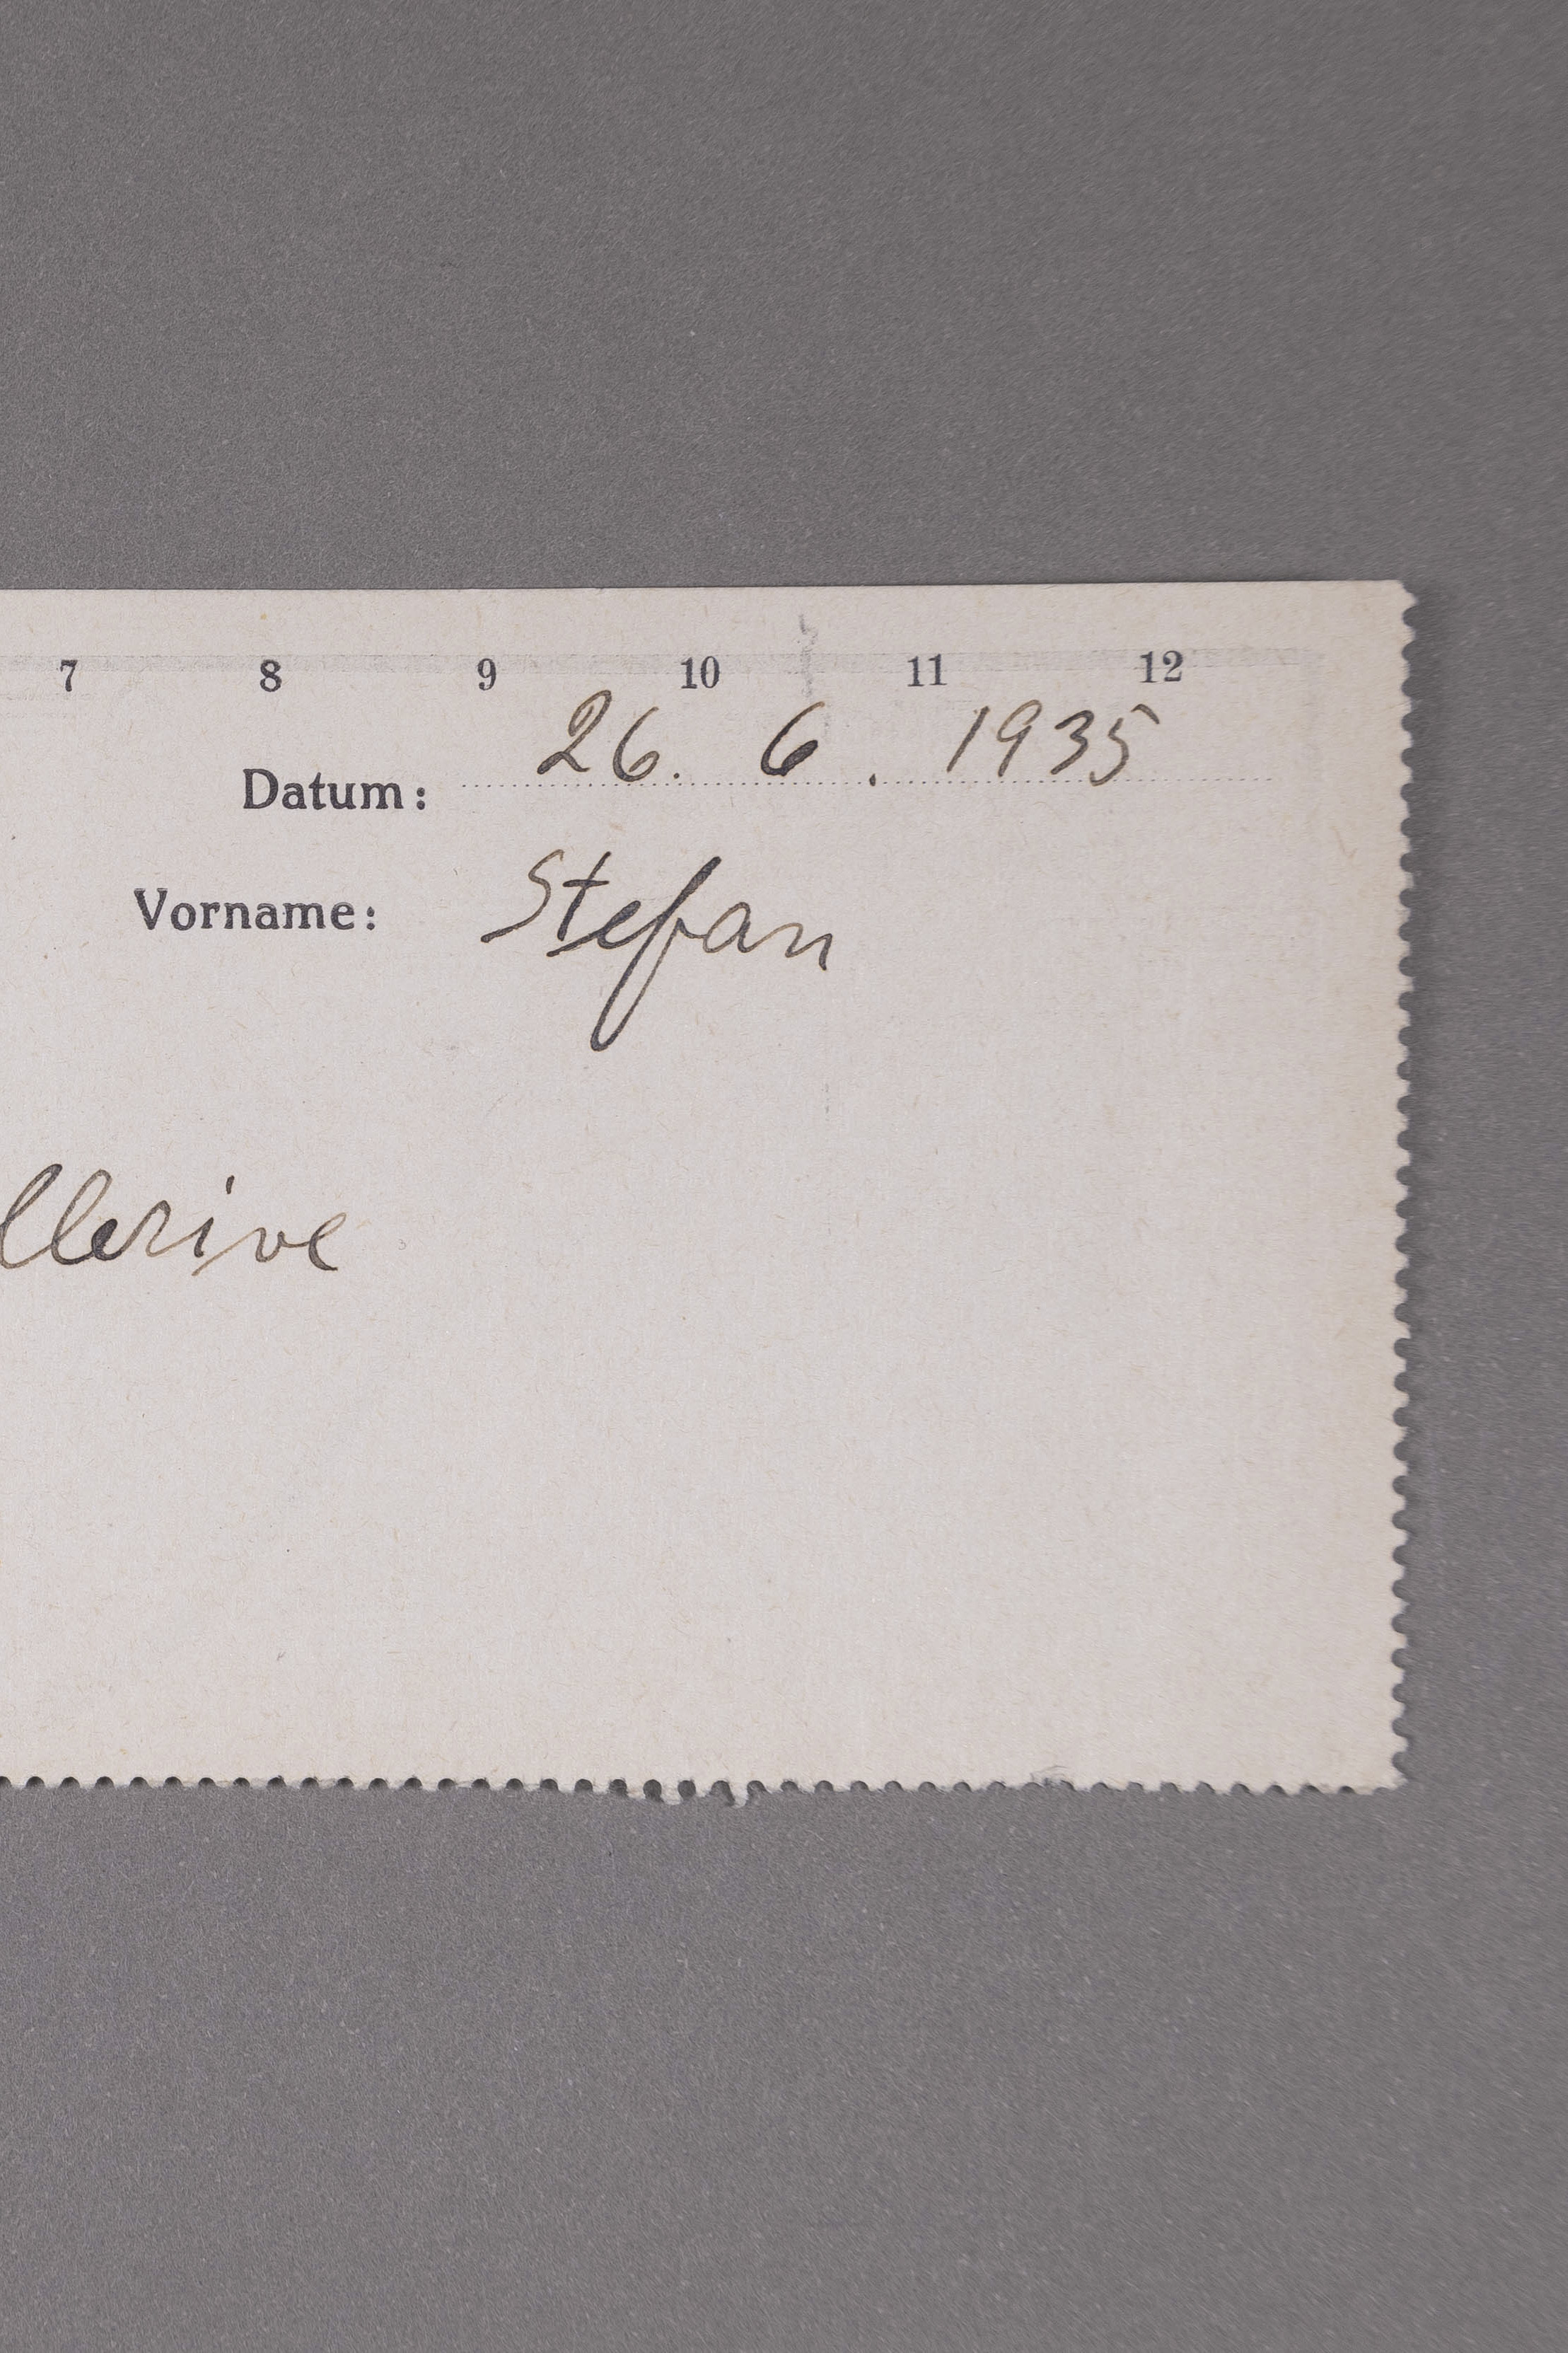 7 8 9 10 11 12
Datum: 26. 6. 1935
Vorname: Stefan
llerive